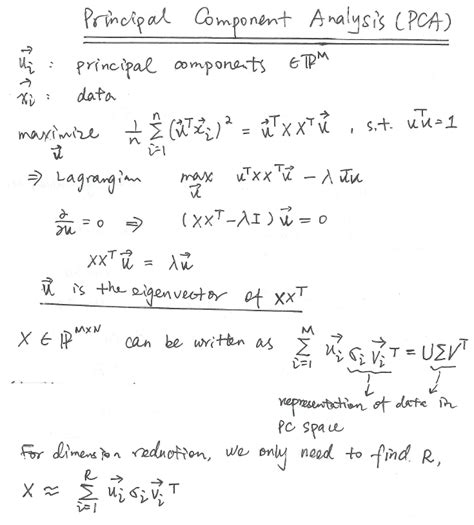 Principal Component Analysis (PCA)
$\vec{u}_i$ : principal components $\in \mathbb{R}^M$
$\vec{x}_i$ : data
maximize $\vec{u}$ $\frac{1}{n} \sum_{i=1}^{n} (\vec{u}^T \vec{x}_i)^2 = \vec{u}^T X X^T \vec{u}$ , s.t. $u^T u = 1$
⇒ Lagrangian $\max_{\vec{u}}$ $u^T X X^T \vec{u} - \lambda \vec{u} u$
$\frac{\partial}{\partial u} = 0$ ⇒ $(X X^T - \lambda I) \vec{u} = 0$
$X X^T \vec{u} = \lambda \vec{u}$
$\vec{u}$ is the eigenvector of $X X^T$
$X \in \mathbb{R}^{M \times N}$ can be written as $\sum_{i=1}^{M} \vec{u}_i \sigma_i \vec{v}_i T = U \Sigma V^T$
representation of data in
PC space
For dimension reduction, we only need to find R,
$X \approx \sum_{i=1}^{R} \vec{u}_i \sigma_i \vec{v}_i T$